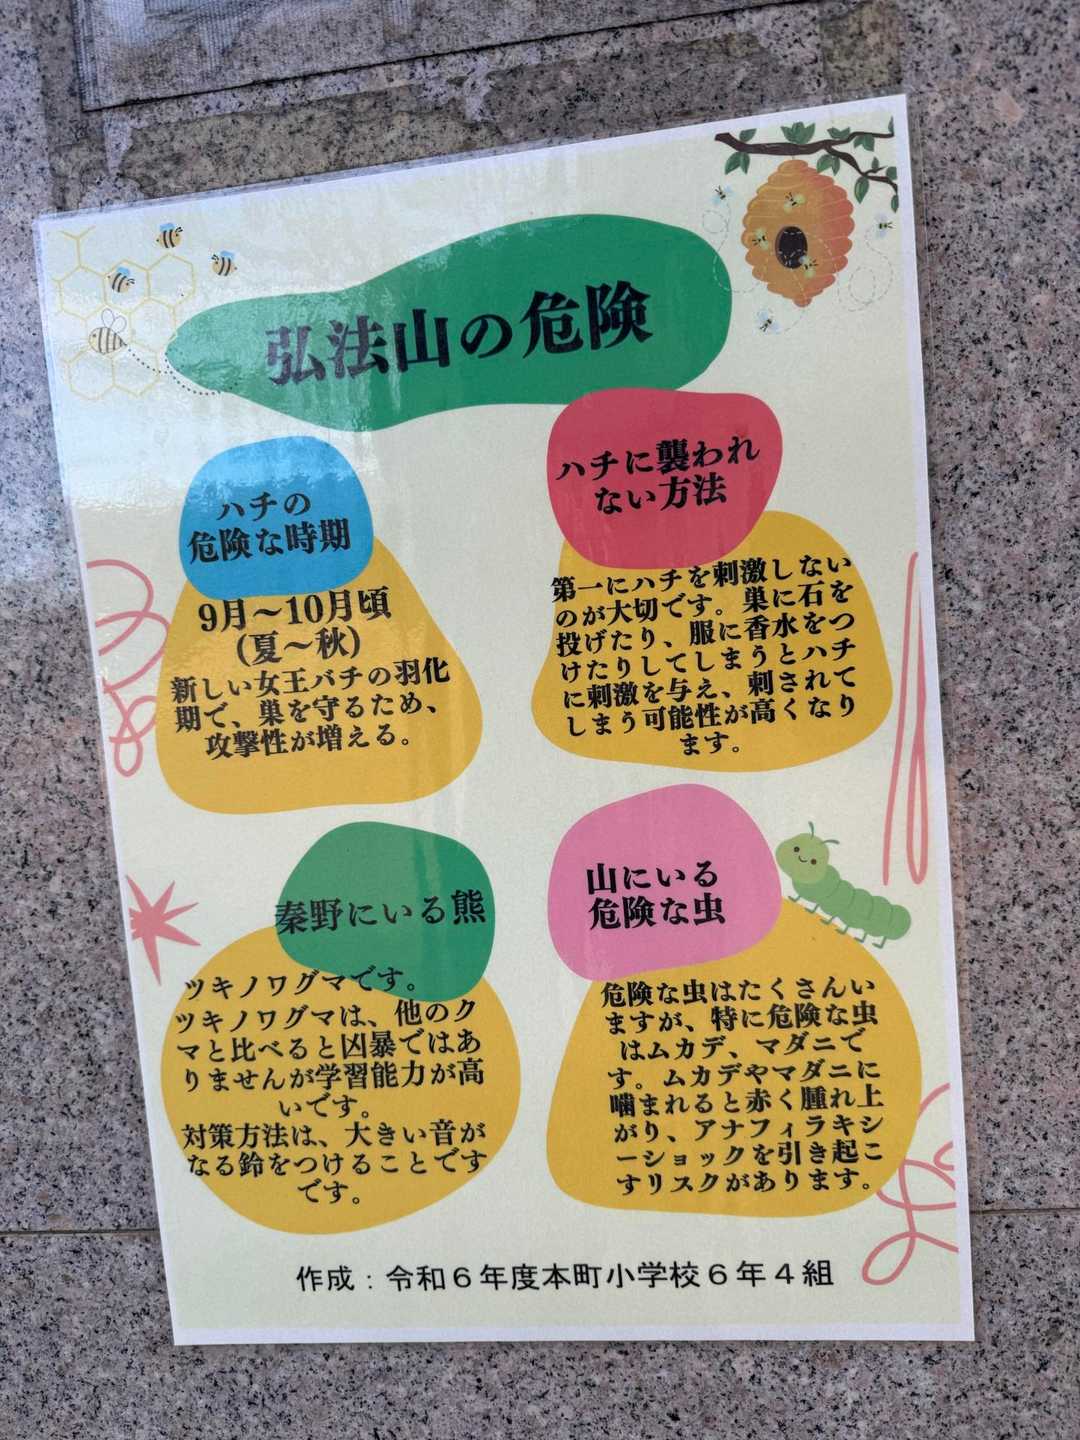 弘法山の危険
ハチの
危険な時期
9月～10月頃
(夏～秋)
新しい女王バチの羽化
期で、巣を守るため、
攻撃性が増える。
ハチに襲われ
ない方法
第一にハチを刺激しない
のが大切です。巣に石を
投げたり、服に香水をつ
けたりしてしまうとハチ
に刺激を与え、刺されて
しまう可能性が高くなり
ます。
秦野にいる熊
ツキノワグマです。
ツキノワグマは、他のク
マと比べると凶暴ではあ
りませんが学習能力が高
いです。
対策方法は、大きい音が
なる鈴をつけることです
です。
山にいる
危険な虫
危険な虫はたくさんい
ますが、特に危険な虫
はムカデ、マダニで
す。ムカデやマダニに
噛まれると赤く腫れ上
がり、アナフィラキシ
ーショックを引き起こ
すリスクがあります。
作成：令和６年度本町小学校６年４組